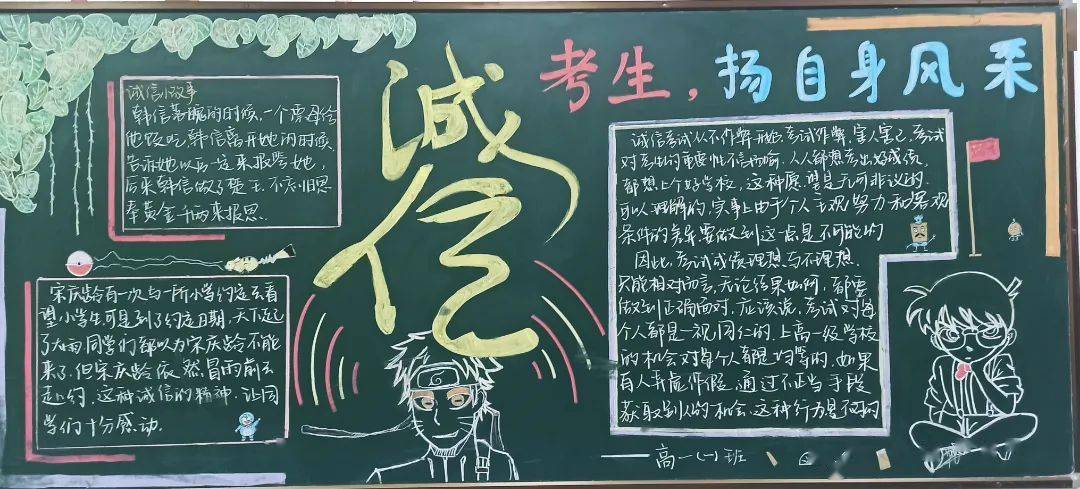 诚信
考生，扬自身风采
诚信小故事
韩信落魄的时候，一个漂母给
他饭吃，韩信离开她的时候，
告诉她以后一定来报答她，
后来韩信做了楚王，不忘旧恩
奉黄金千两来报恩
宋庆龄有一次与一所小学约定去看
望小学生可是到了约定日期，天下起
了大雨同学们都以为宋庆龄不能
来了，但宋庆龄依然冒雨前去
赴约，这种诚信的精神，让同
学们十分感动.
诚信考试从不作弊开始，考试作弊，害人害己，考试
对考生的重要性不言而喻，人人都想考出好成绩，
都想上个好学校，这种愿望是无可非议的，
可以理解的，实事上由于个人主观努力和客观
条件的差异要做到这一点是不可能的
因此，考试成绩理想与不理想，
只能相对而言，无论结果如何，都要
做到正确面对，应该说，考试对每
个人都是一视同仁的，上高一级学校
的机会对每个人都是均等的，如果
有人弄虚作假，通过不正当手段
获取别人的机会，这种行为是不的
——高一(一)班